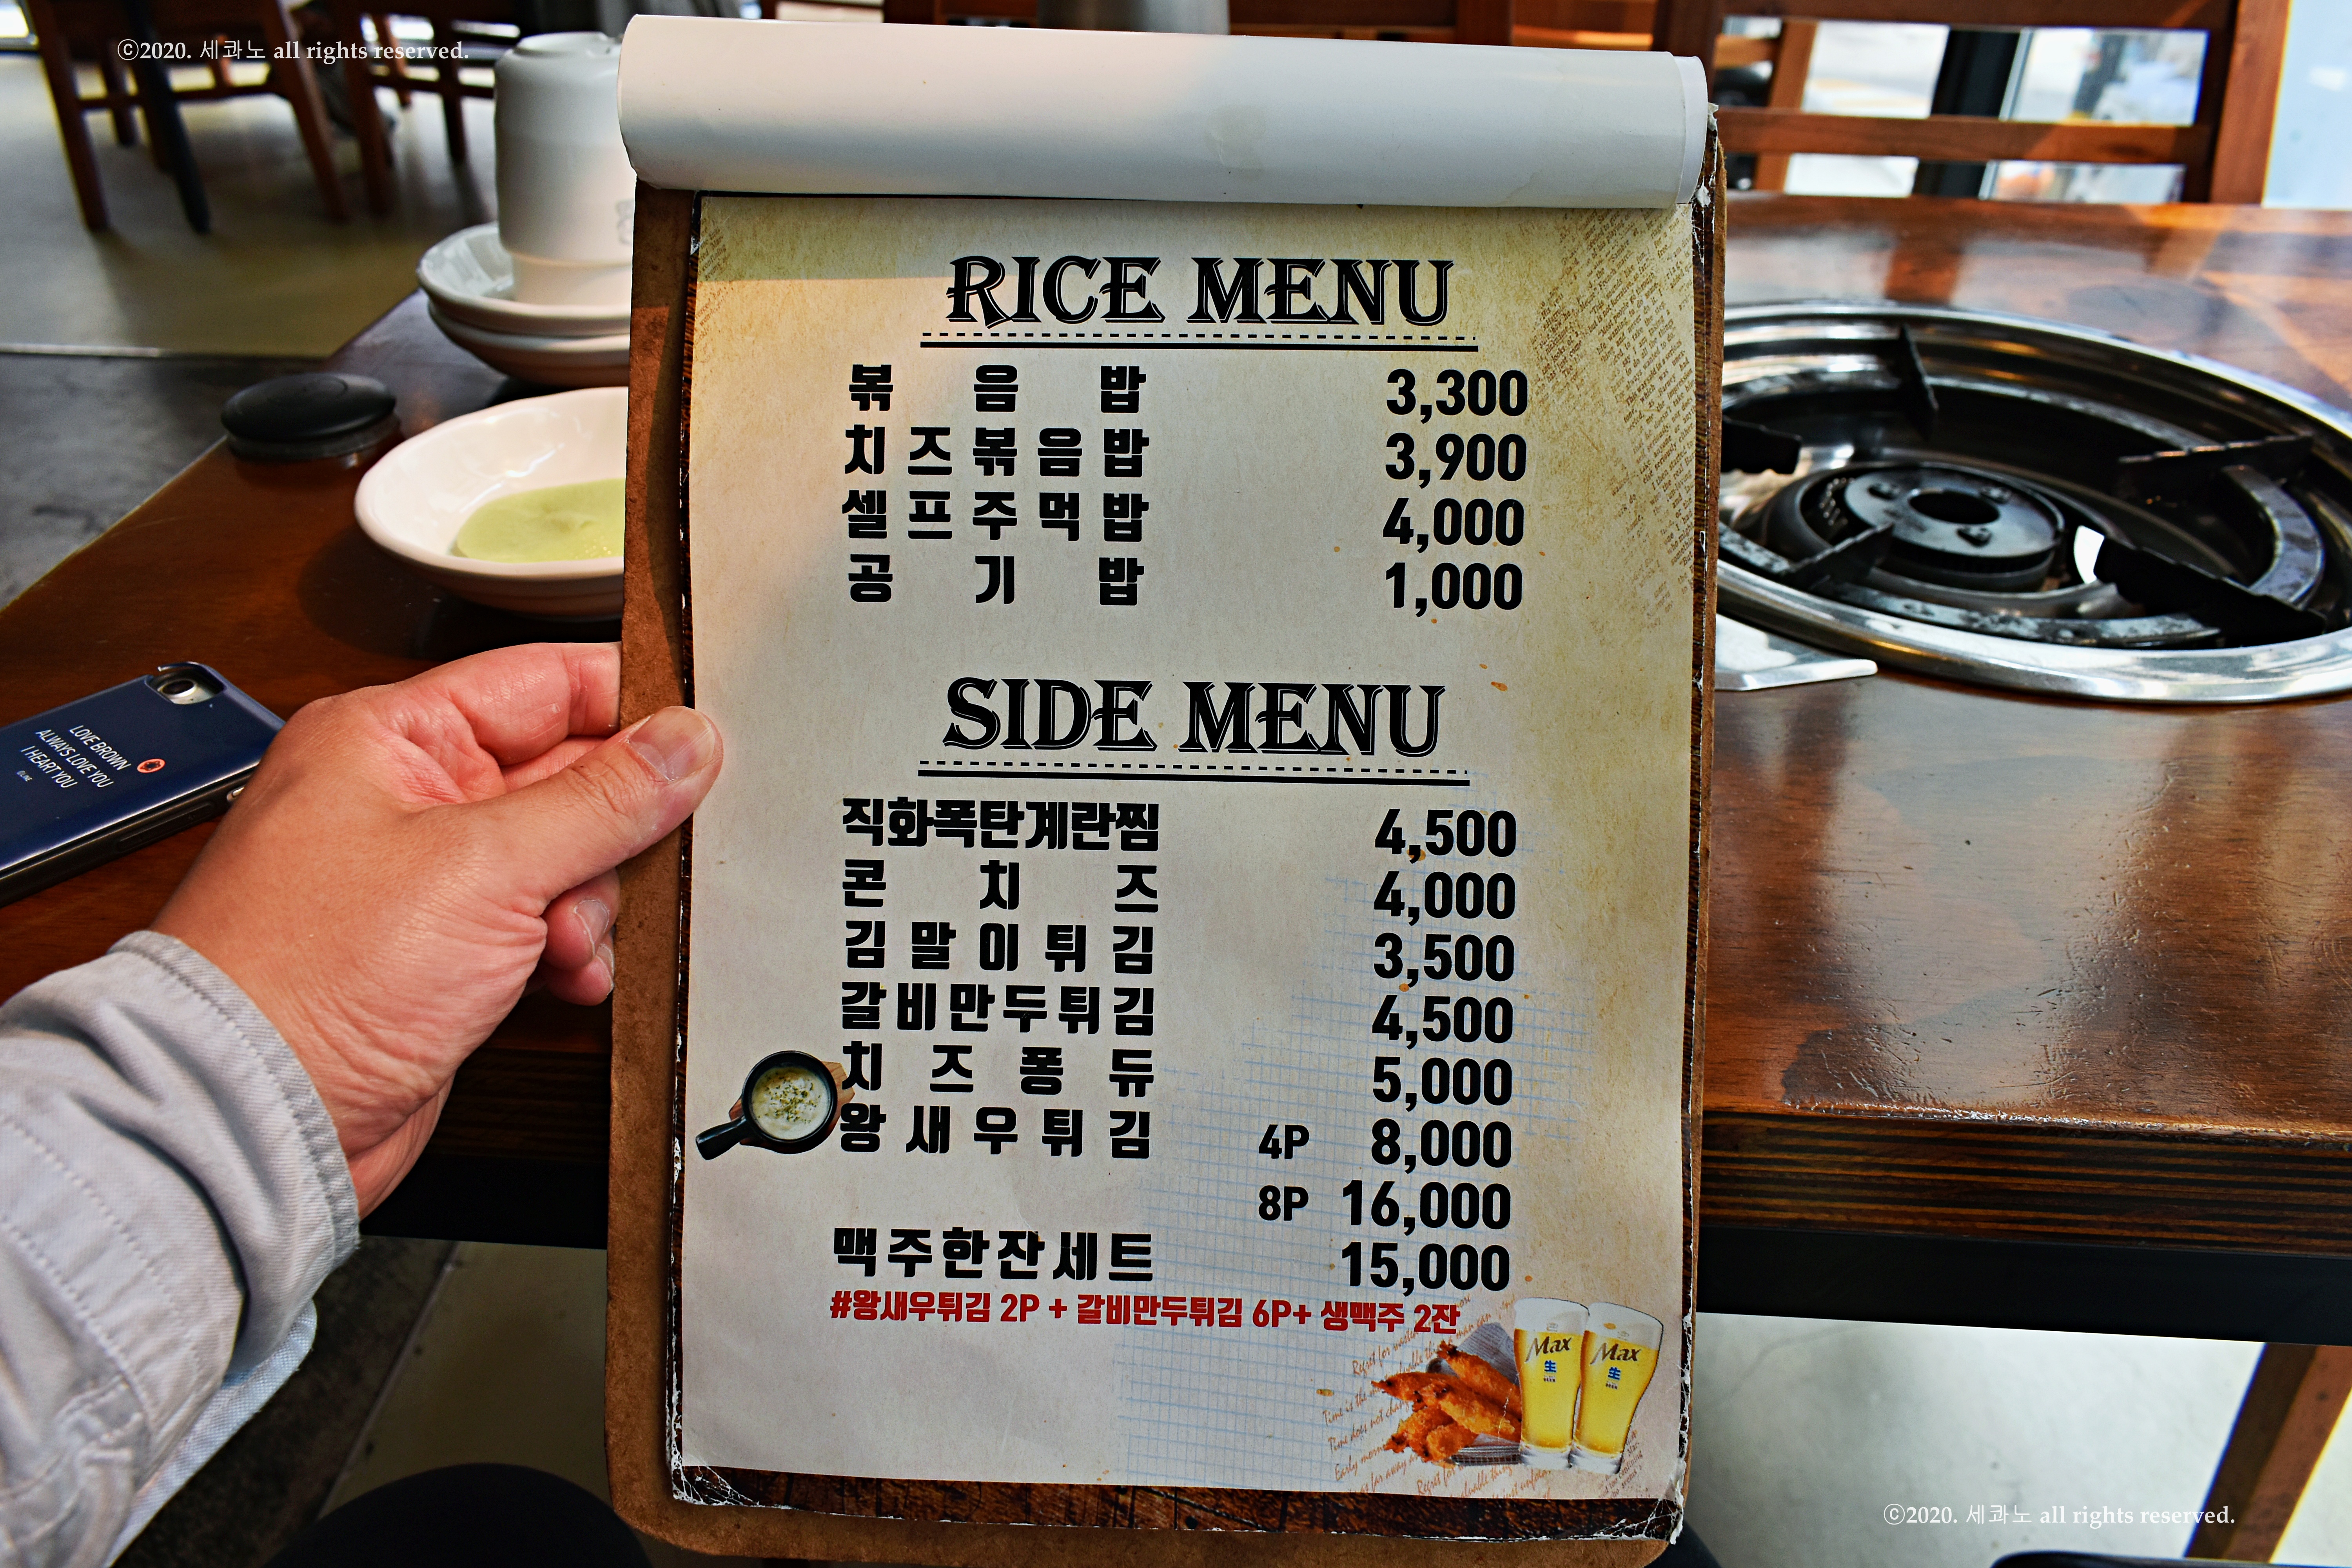 ⓒ2020. 세콰노 all rights reserved.
RICE MENU
볶음밥 3,300
치즈볶음밥 3,900
셀프주먹밥 4,000
공기밥 1,000
SIDE MENU
직화폭탄계란찜 4,500
콘치즈 4,000
김말이튀김 3,500
갈비만두튀김 4,500
치즈퐁듀 5,000
왕새우튀김 4P 8,000
8P 16,000
맥주한잔세트 15,000
#왕새우튀김 2P + 갈비만두튀김 6P+ 생맥주 2잔
Max 生
Max 生
LOVE BROWN
ALWAYS LOVE YOU
I HEART YOU
ⓒ2020. 세콰노 all rights reserved.